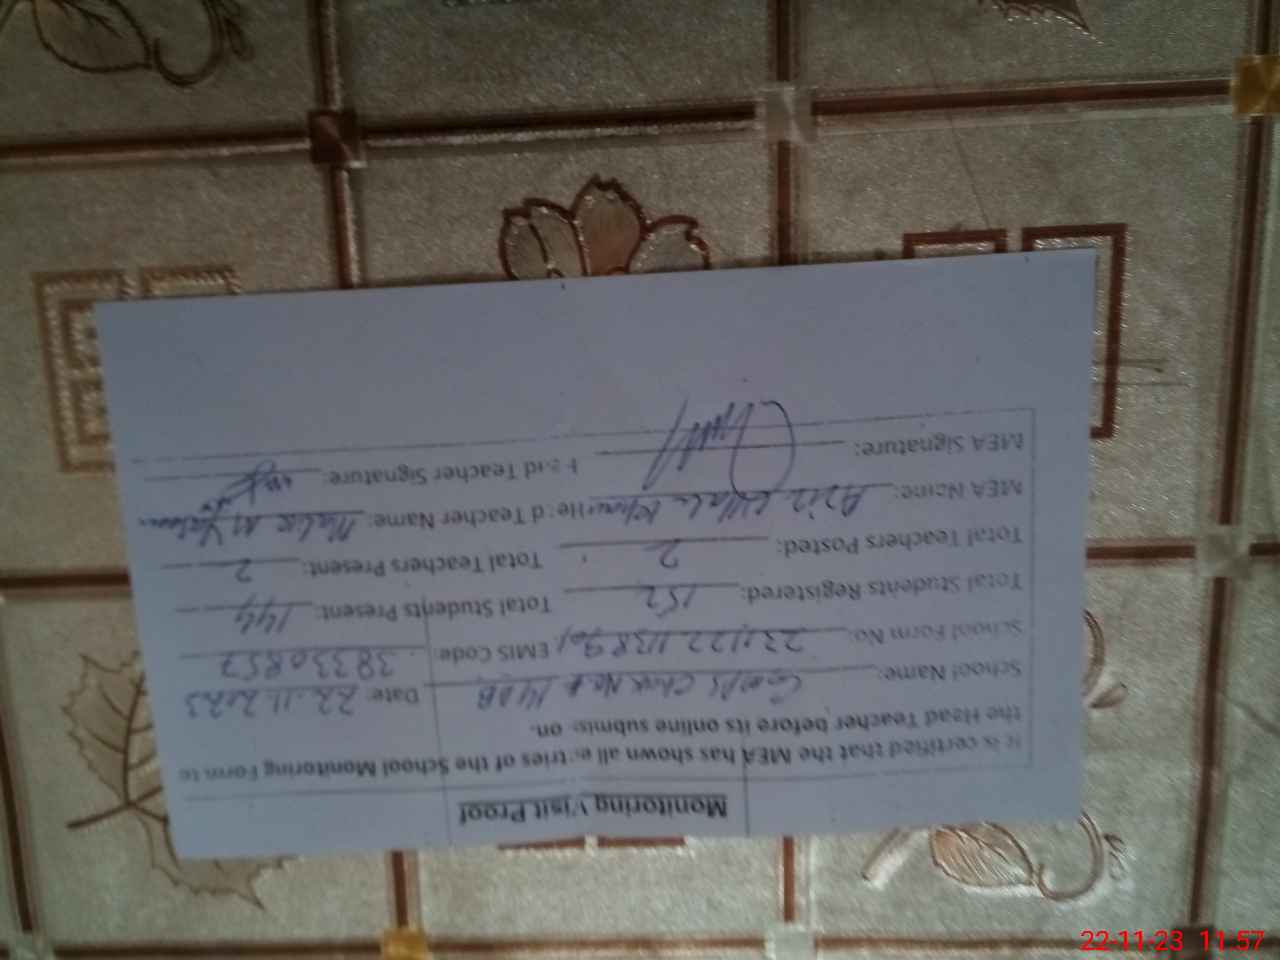 Monitoring Visit Proof
It is certified that the MEA has shown all entries of the School Monitoring Form to
the Head Teacher before its online submission.
School Name: Chak No 14 DB Date: 22.11.2023
School Form No: EMIS Code: 38330857
Total Students Registered: 152 Total Students Present: 144
Total Teachers Posted: 2 Total Teachers Present: 2
MEA Name: Head Teacher Name: Malik M
MEA Signature: Head Teacher Signature:
22-11-23 11:57